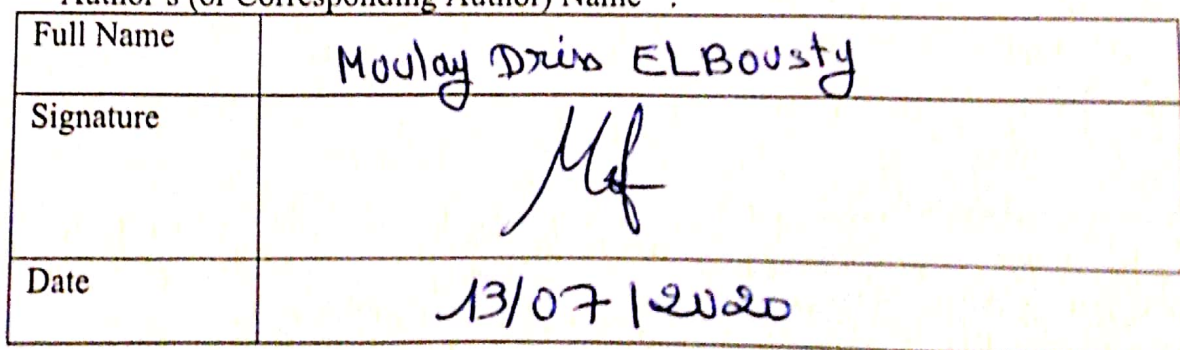 Author's (or Corresponding Author) Name :
Full Name Moulay Driss ELBousty
Signature
Date 13/07/2020